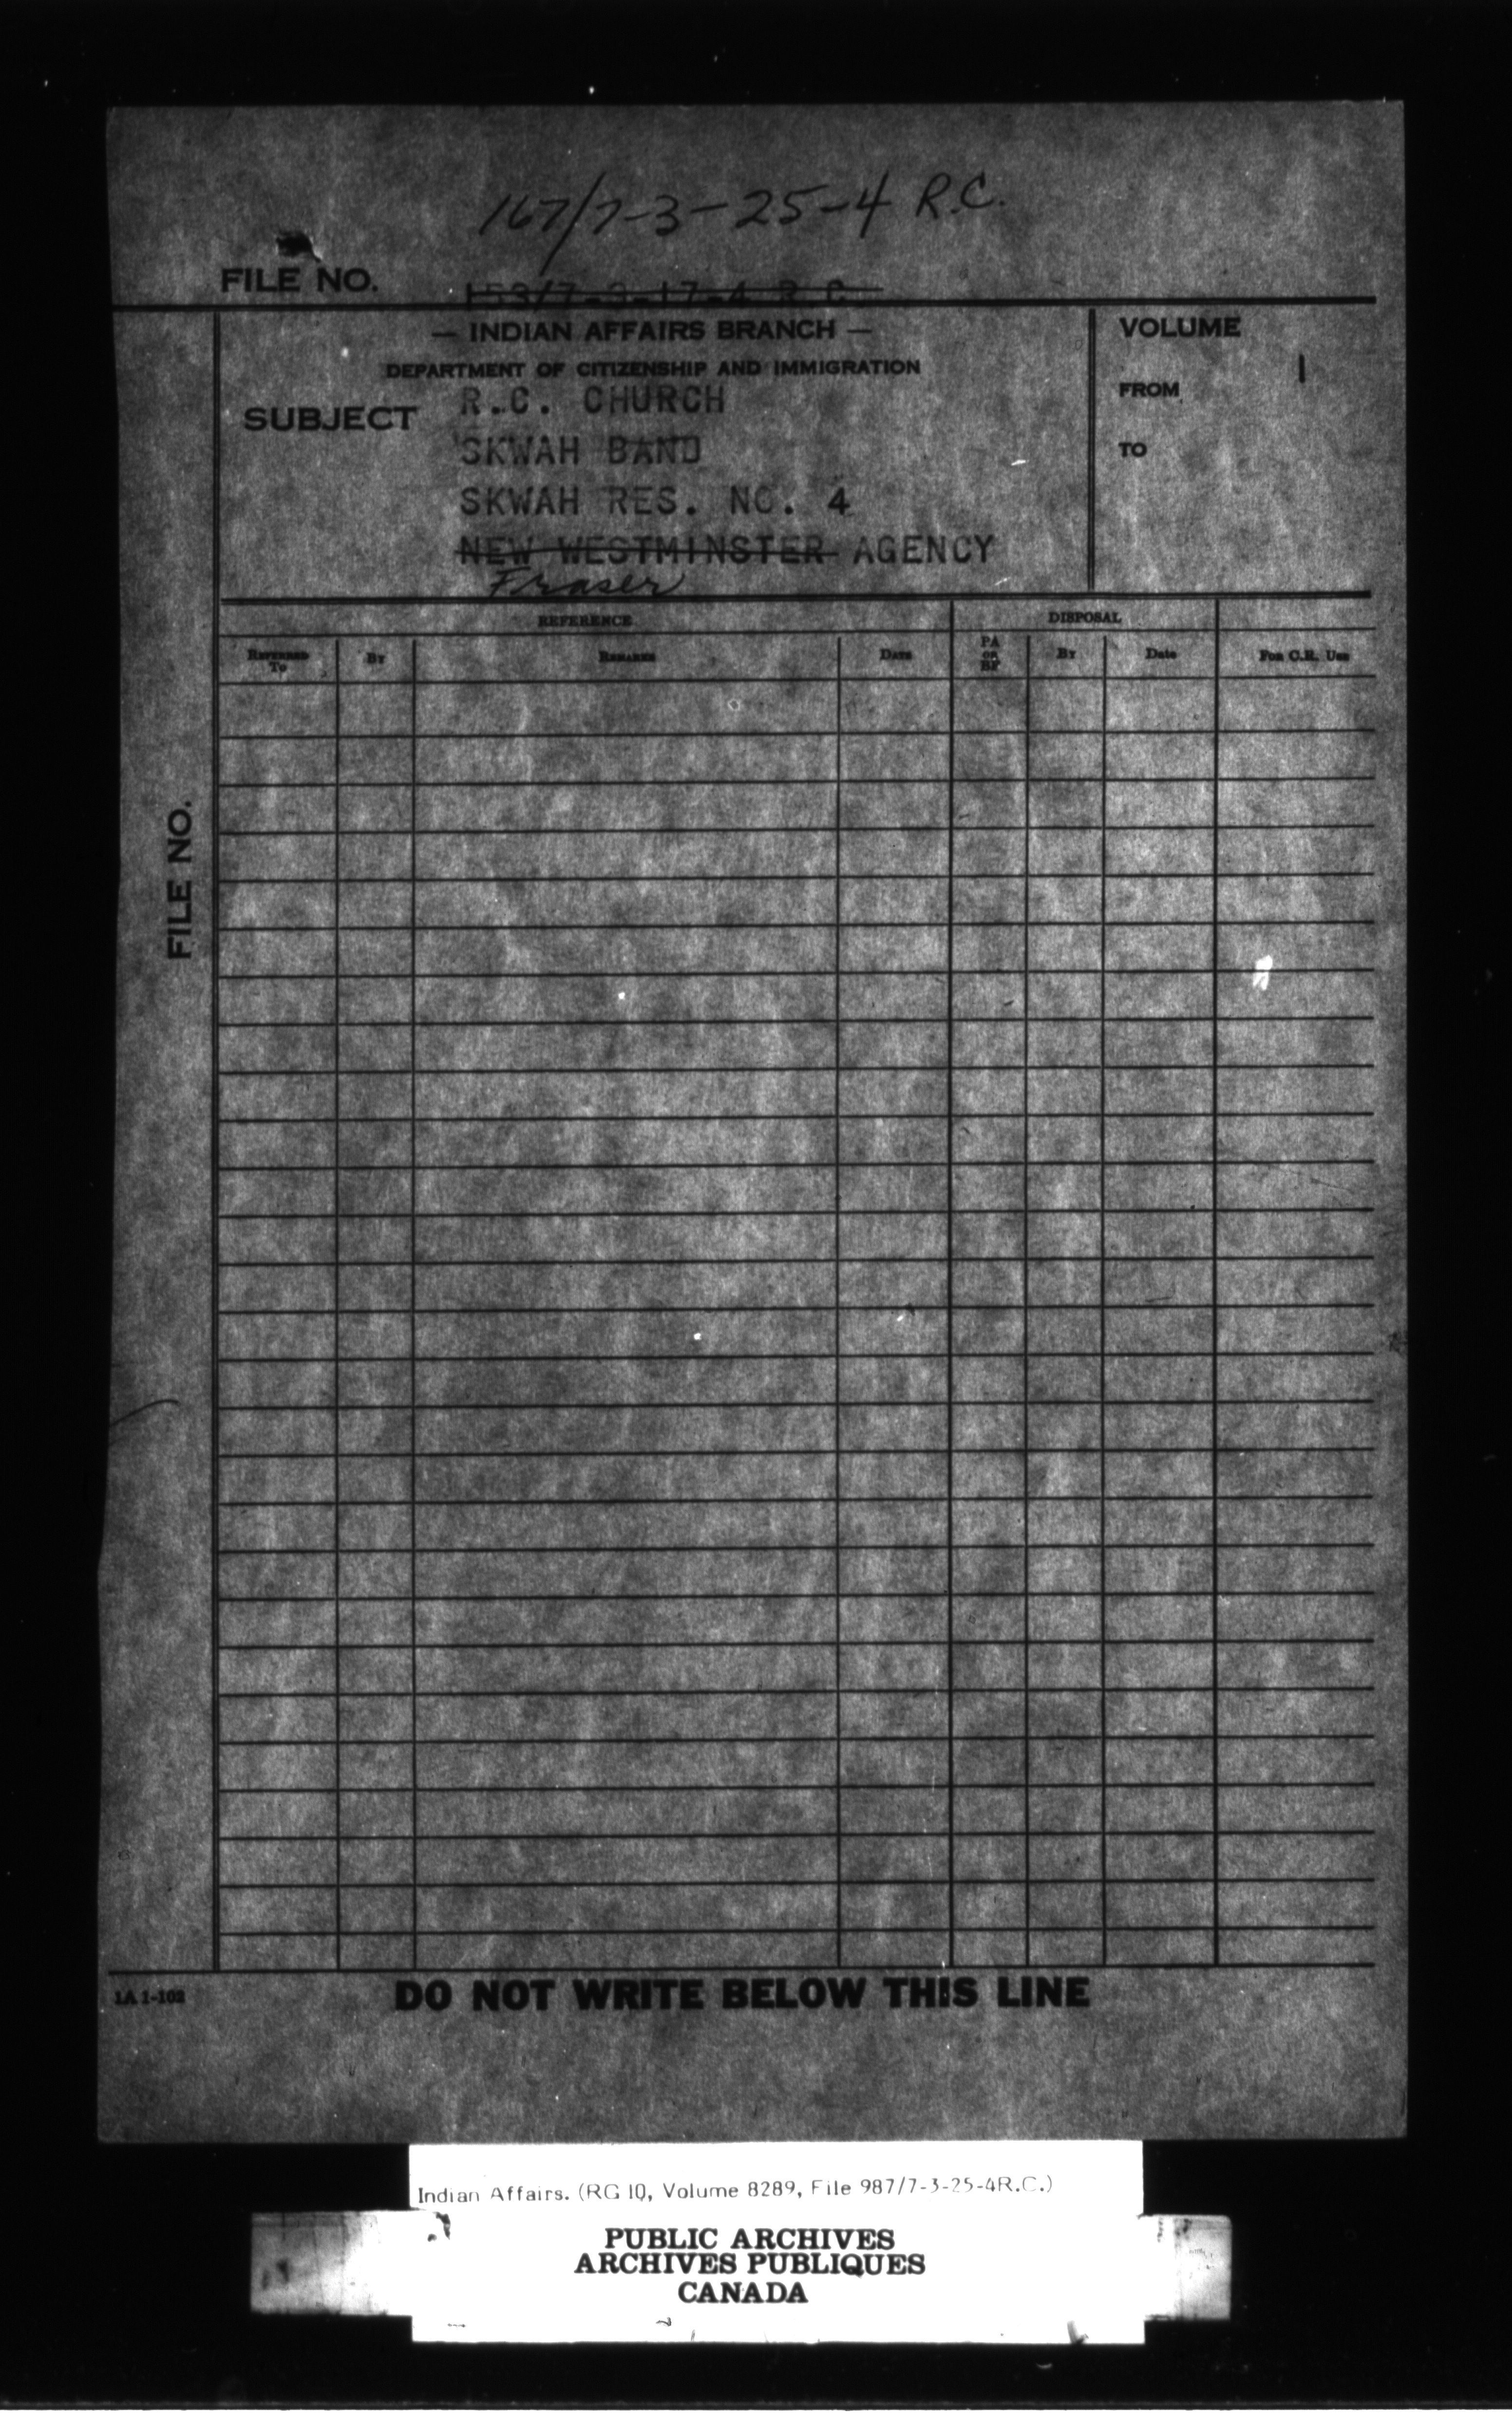 167/7-3-25-4 R.C.
FILE NO. 153/7-3-17-4 R C
— INDIAN AFFAIRS BRANCH —
DEPARTMENT OF CITIZENSHIP AND IMMIGRATION
SUBJECT
R.C. CHURCH
SKWAH BAND
SKWAH RES. NO. 4
NEW WESTMINSTER AGENCY
Fraser
VOLUME
1
FROM
TO
REFERENCE
DISPOSAL
REFERRED TO
BY
REMARKS
DATE
PA OR BF
By
Date
FOR C.R. USE
FILE NO.
1A 1-102
DO NOT WRITE BELOW THIS LINE
Indian Affairs. (RG 10, Volume 8289, File 987/7-3-25-4R.C.)
PUBLIC ARCHIVES
ARCHIVES PUBLIQUES
CANADA